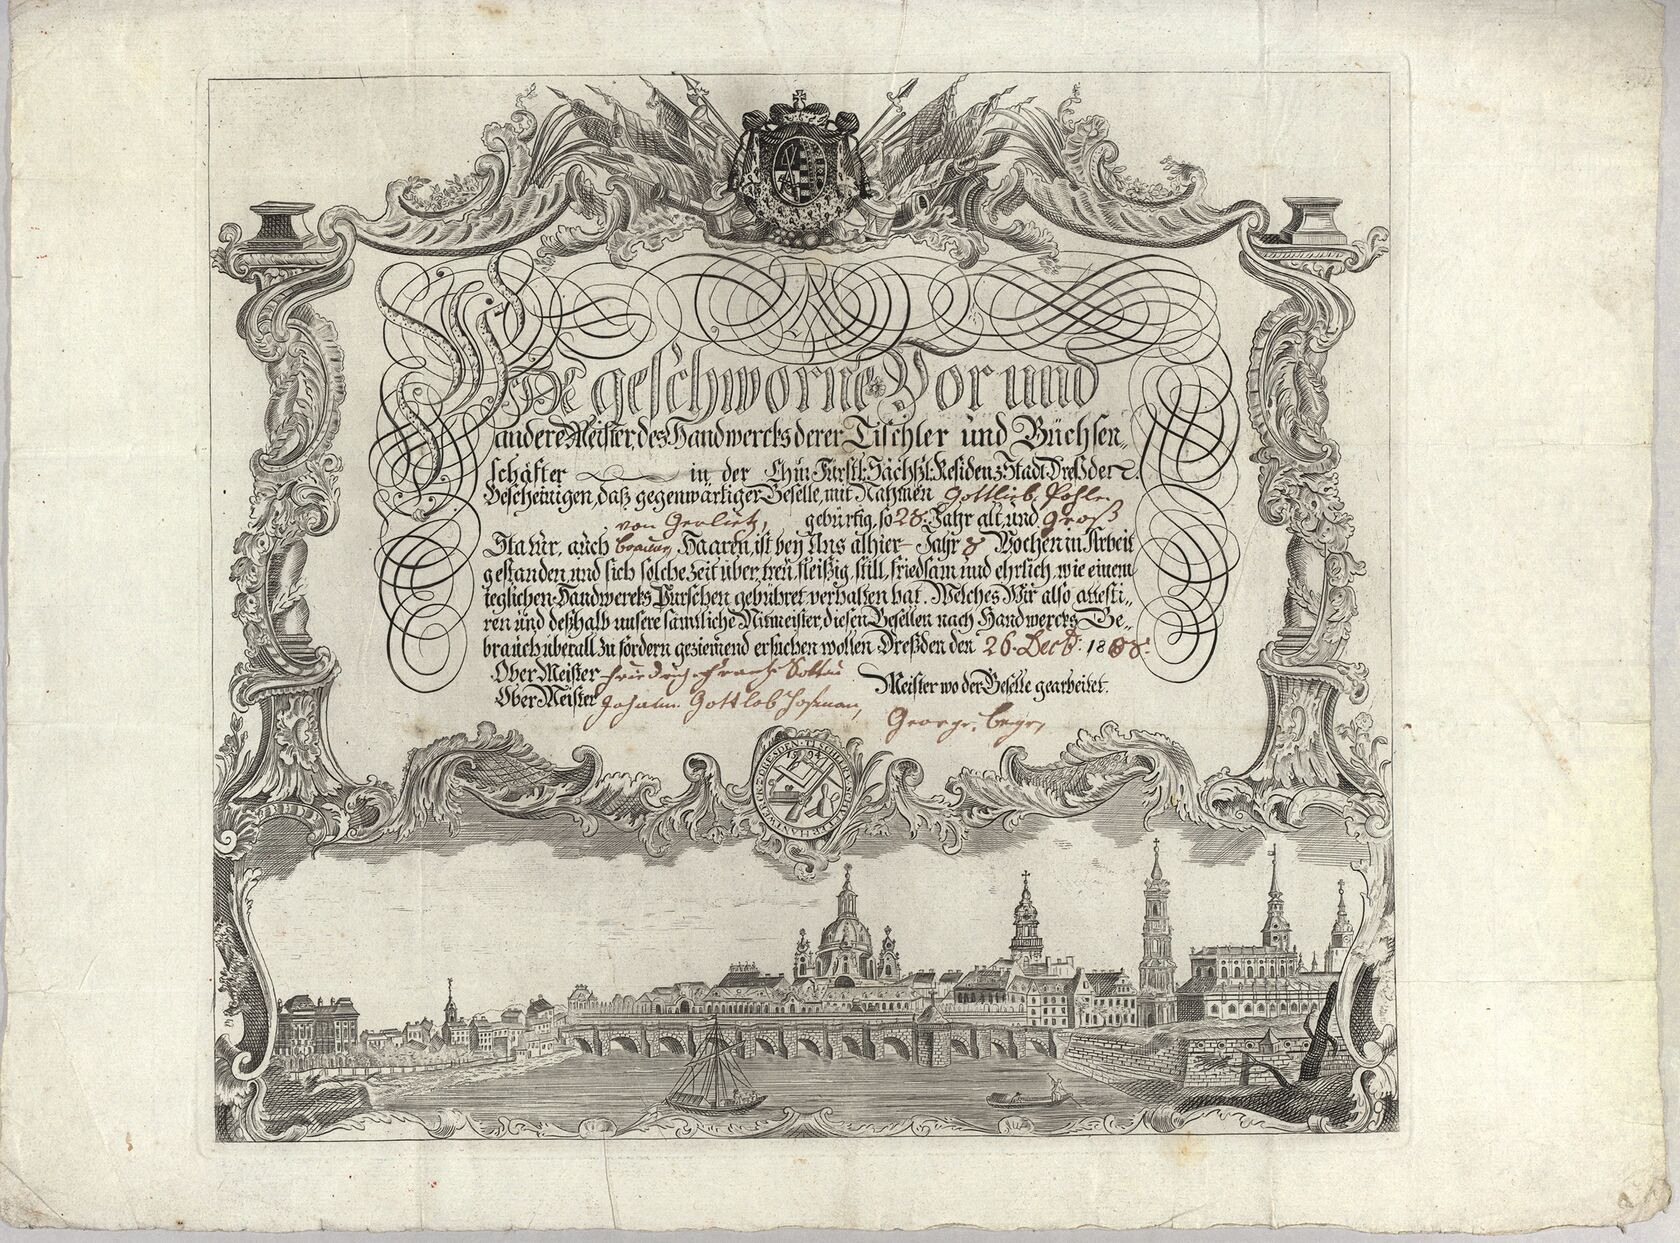 Wir geschworne Vor und
andere Meister, des Handwercks derer Tischler und Büchsen„
schäfter in der Chur-Fürstl: Sächßl: Residenz Stadt Dreßden.
Bescheinigen, daß gegenwärtiger Geselle, mit Nahmen Gottlieb Pohle
von gebürtig, so 28. Jahr alt, und groß
Statur, auch braun Haaren, ist bey Uns alhier – Jahr 8 Wochen in Arbeit
gestanden und sich solche Zeit über, treu, fleißig, still, friedsam und ehrlich, wie einem
ieglichen Handwercks Purschen gebühret verhalten hat. Welches Wir also attesti„
ren und deßhalb unsere sämtliche Mitmeister, diesen Gesellen nach Handwercks Ge„
brauch überall zu fördern geziemend ersuchen wollen Dreßden den 26. Decb: 18
Ober Meister
Ober Meister Johann Gottlob
Meister wo der Geselle gearbeitet.
George
DRESDEN TISCHER